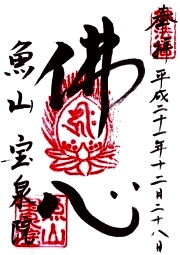 奉拝
平成二十一年十二月二十八日
佛心
魚山宝泉院
魚山